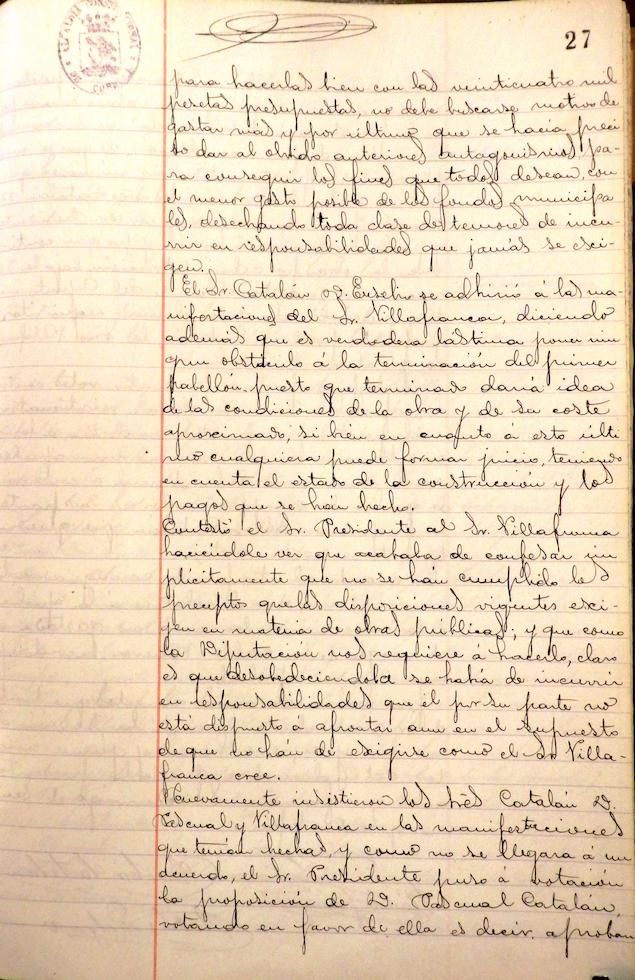 27
para hacerlas bien con las veinticuatro mil
pesetas presupuestas, no debe buscarse motivo de
gastar más y por último que se hacía preci
so dar al olvido anteriores antagonismos, pa-
ra conseguir los fines que todos desean, con
el menor gasto posible de los fondos municipa
les, desechando toda clase de temores de incu-
rrir en responsabilidades que jamás se exi-
gen.
El Sr. Catalán D. Eusebio se adhirió á las ma-
nifestaciones del Sr. Villafranca, diciendo
además que es verdadera lástima poner nin
gun obstáculo á la terminación del primer
pabellon, puesto que terminado daría idea
de las condiciones de la obra y de su coste
aproximado, si bién en cuanto á esto últi
mo cualquiera puede formar juicio, teniendo
en cuenta el estado de la construcción y los
pagos que se hán hecho.
Contestó el Sr. Presidente al Sr. Villafranca
haciéndole ver que acababa de confesar im
plícitamente que no se hán cumplido los
preceptos que las disposiciones vigentes exi-
gen en materia de obras públicas; y que como
la Diputación nos requiere á hacerlo, claro
es que desobedeciendola se había de incurrir
en responsabilidades que él por su parte no
está dispuesto á afrontar aun en el supuesto
de que no hán de exigirse como el Sr. Villa-
franca cree.
Nuevamente insistieron los Sres Catalán D.
Pascual y Villafranca en las manifestaciones
que tenían hechas, y como no se llegara á un
acuerdo, el Sr. Presidente puso á votación
la proposición de D. Pascual Catalán,
votando en favor de ella es decir, aproban